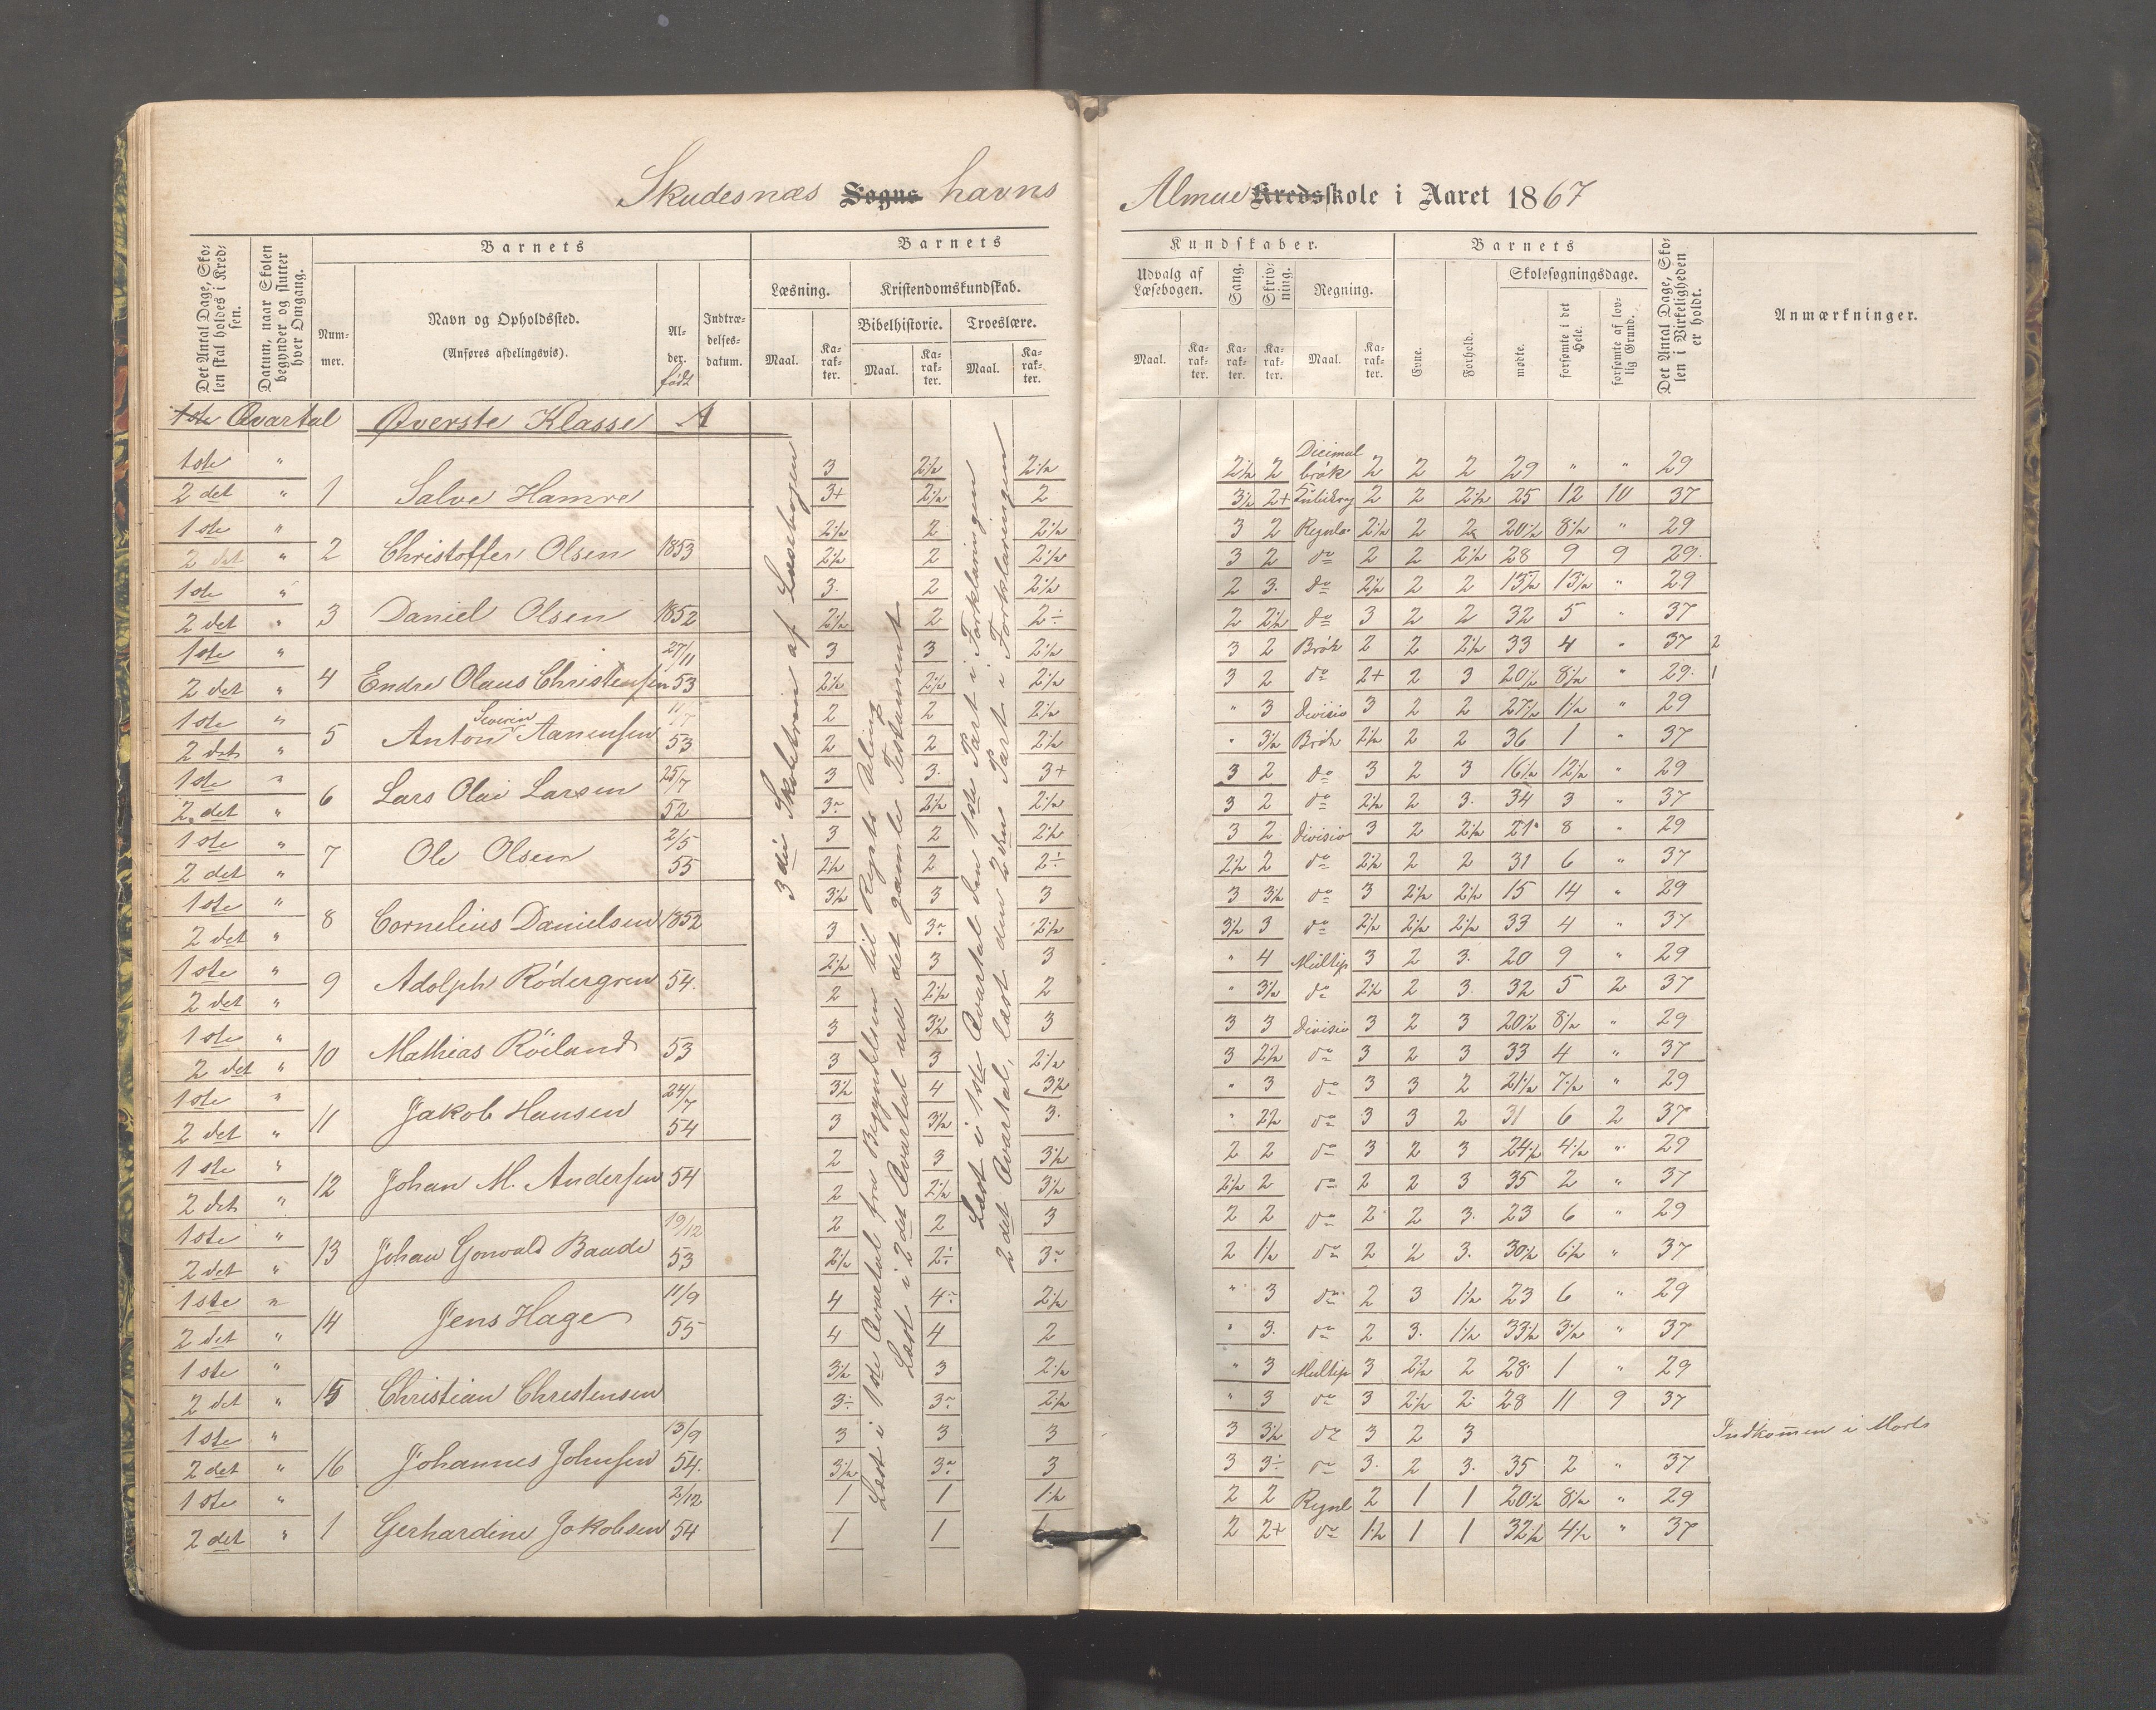 Skudesnæs Sogns havns
Almue Kredsskole i Aaret 1867
Det Antal Dage, Skolen skal holdes i Kredsen.
Datum, naar Skolen begynder og slutter hver Omgang.
Barnets
Nummer.
Navn og Opholdssted.
(Anføres afdelingsvis).
Alder.
født
Indtrædelsesdatum.
Barnets
Læsning.
Maal.
Karakter.
Kristendomskundskab.
Bibelhistorie.
Maal.
Karakter.
Troeslære.
Maal.
Karakter.
Kundskaber.
Udvalg af Læsebogen.
Maal.
Karakter.
Sang.
Karakter.
Skrivning.
Karakter.
Regning.
Maal.
Karakter.
Barnets
Evne.
Forhold.
Skolesøgningsdage.
mødte.
forsømte i det Hele.
forsømte af lovlig Grund.
Det Antal Dage, Skolen i Virkeligheden er holdt.
Anmærkninger.
1ste Qvartal Øverste Klasse A
3die Skoletrin af Læsebogen
Læst i 1ste Qvartal fra Begyndelsen til Rigets Deling
Læst i 2det Qvartal ud det gamle Testament
Læst i 1ste Qvartal den 1ste Part i Forklaringen
2det Qvartal, læst den 2den Part i Forklaringen
1ste " 3 2½ 2½ 2½ 2 Decimalbrøk 2 2 2 29 " " 29
2det " 1 Salve Hamre 3+ 2½ 2 3½ 2+ 2 2 2½ 25 12 10 37
1ste " 2½ 2 2½ 3 2 2½ 2 2 20½ 8½ " 29
2det " 2 Christoffer Olsen 1853 2½ 2 2½ 3 2 do 2 2 2½ 28 9 9 29.
1ste " 3. 2 2½ 2 3. do 2½ 2 2 13½ 13½ " 29
2det " 3 Daniel Olsen 1852 2½ 2 2÷ 2 2½ do 3 2 2 32 5 " 37
1ste " 27/11 3 3 2½ 3 2 Brøk 2 2 2½ 33 4 " 37 2
2det " 4 Endre Olaus Christensen 53 2½ 2½ 2½ 3 2 do 2+ 2 3 20½ 8½ " 29. 1
1ste " 11/7 2 2 2½ " 3 Divisio 3 2 2 27½ 1½ " 29
2det " 5 Anton Severin Aanensen 53 2 2 2½ " 3½ Brøk 2½ 2 2 36 1 " 37
1ste " 25/7 3 3. 3+ 3 2 do 3 2 3 16½ 12½ " 29
2det " 6 Lars Olai Larsen 52 3÷ 2½ 2½ 3 2 do 2½ 2 3. 34 3 " 37
1ste " 2/5 3 2 2½ 3 2 Divisio 3 2 2½ 21 8 " 29
2det " 7 Ole Olsen 55 2½ 2 2÷ 2½ 2 do 2½ 2 2 31 6 " 37
1ste " 3½ 3 3 3 3½ do 3 2½ 2½ 15 14 " 29
2det " 8 Cornelius Danielsen 1852 3 3÷ 2½ 3½ 3 do 2½ 2½ 2½ 33 4 " 37
1ste " 2½ 3 3 " 4 Multip 3 2 3. 20 9 " 29
2det " 9 Adolph Rödergren 54. 2 2½ 2 " 3½ do 2½ 2 3. 32 5 2 37
1ste " 3 3½ 3 3 3 Divisio 3 2 3 20½ 8½ " 29
2det " 10 Mathias Röiland 53 3 3 2½ 3 2½ do 3 2 3 33 4 " 37
1ste " 24/7 3½ 4 3½ " 3 do 3 3 2 21½ 7½ " 29
2det " 11 Jakob Hansen 54 3 3½ 3. " 2½ do 3 3 2 31 6 2 37
1ste " 2 3 3½ 2 2 do 3 2 3 24½ 4½ " 29
2det " 12 Johan M. Andersen 54 2 2½ 3½ 2½ 2 do 2 2 3 35 2 " 37
1ste " 19/12 2 2 3 2 2 do 2 2 3. 23 6 " 29
2det " 13 Johan Gonvald Baade 53 2½ 2÷ 3÷ 2 1½ do 2 2 3. 30½ 6½ " 37
1ste " 11/9 4 4÷ 2½ " 3 do 2 3 1½ 23 6 " 29
2det " 14 Jens Hage 55 4 4 2 " 3. do 2 3. 1½ 33½ 3½ " 37
1ste " 3½ 3 2½ " 3 Multip 3 2½ 2 28 1 " 29
2det " 15 Christian Christensen 3÷ 3÷ 2½ " 3 do 3 2½ 2 28 11 9 37
1ste " 13/9 3 3 3 3 3½ do 3 2 3 Indkommen i Marts
2det " 16 Johannes Johnsen 54. 3½ 3÷ 3 3 3÷ do 3. 2 3. 35 2 " 37
1ste " 2/12 1 1 1½ 2 2 2 1 1 20½ 8½ " 29
2det " 1 Gerhardine Jakobsen 54 1 1 2 2+ do 1½ 1 1 32½ 4½ " 37